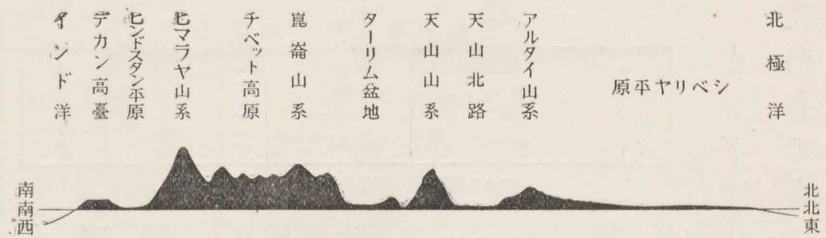 北極洋
シベリヤ平原
アルタイ山系
天山北路
天山山系
ターリム盆地
崑崙山系
チベット高原
ヒマラヤ山系
ヒンドスタン平原
デカン高臺
インド洋
北北東
南南西